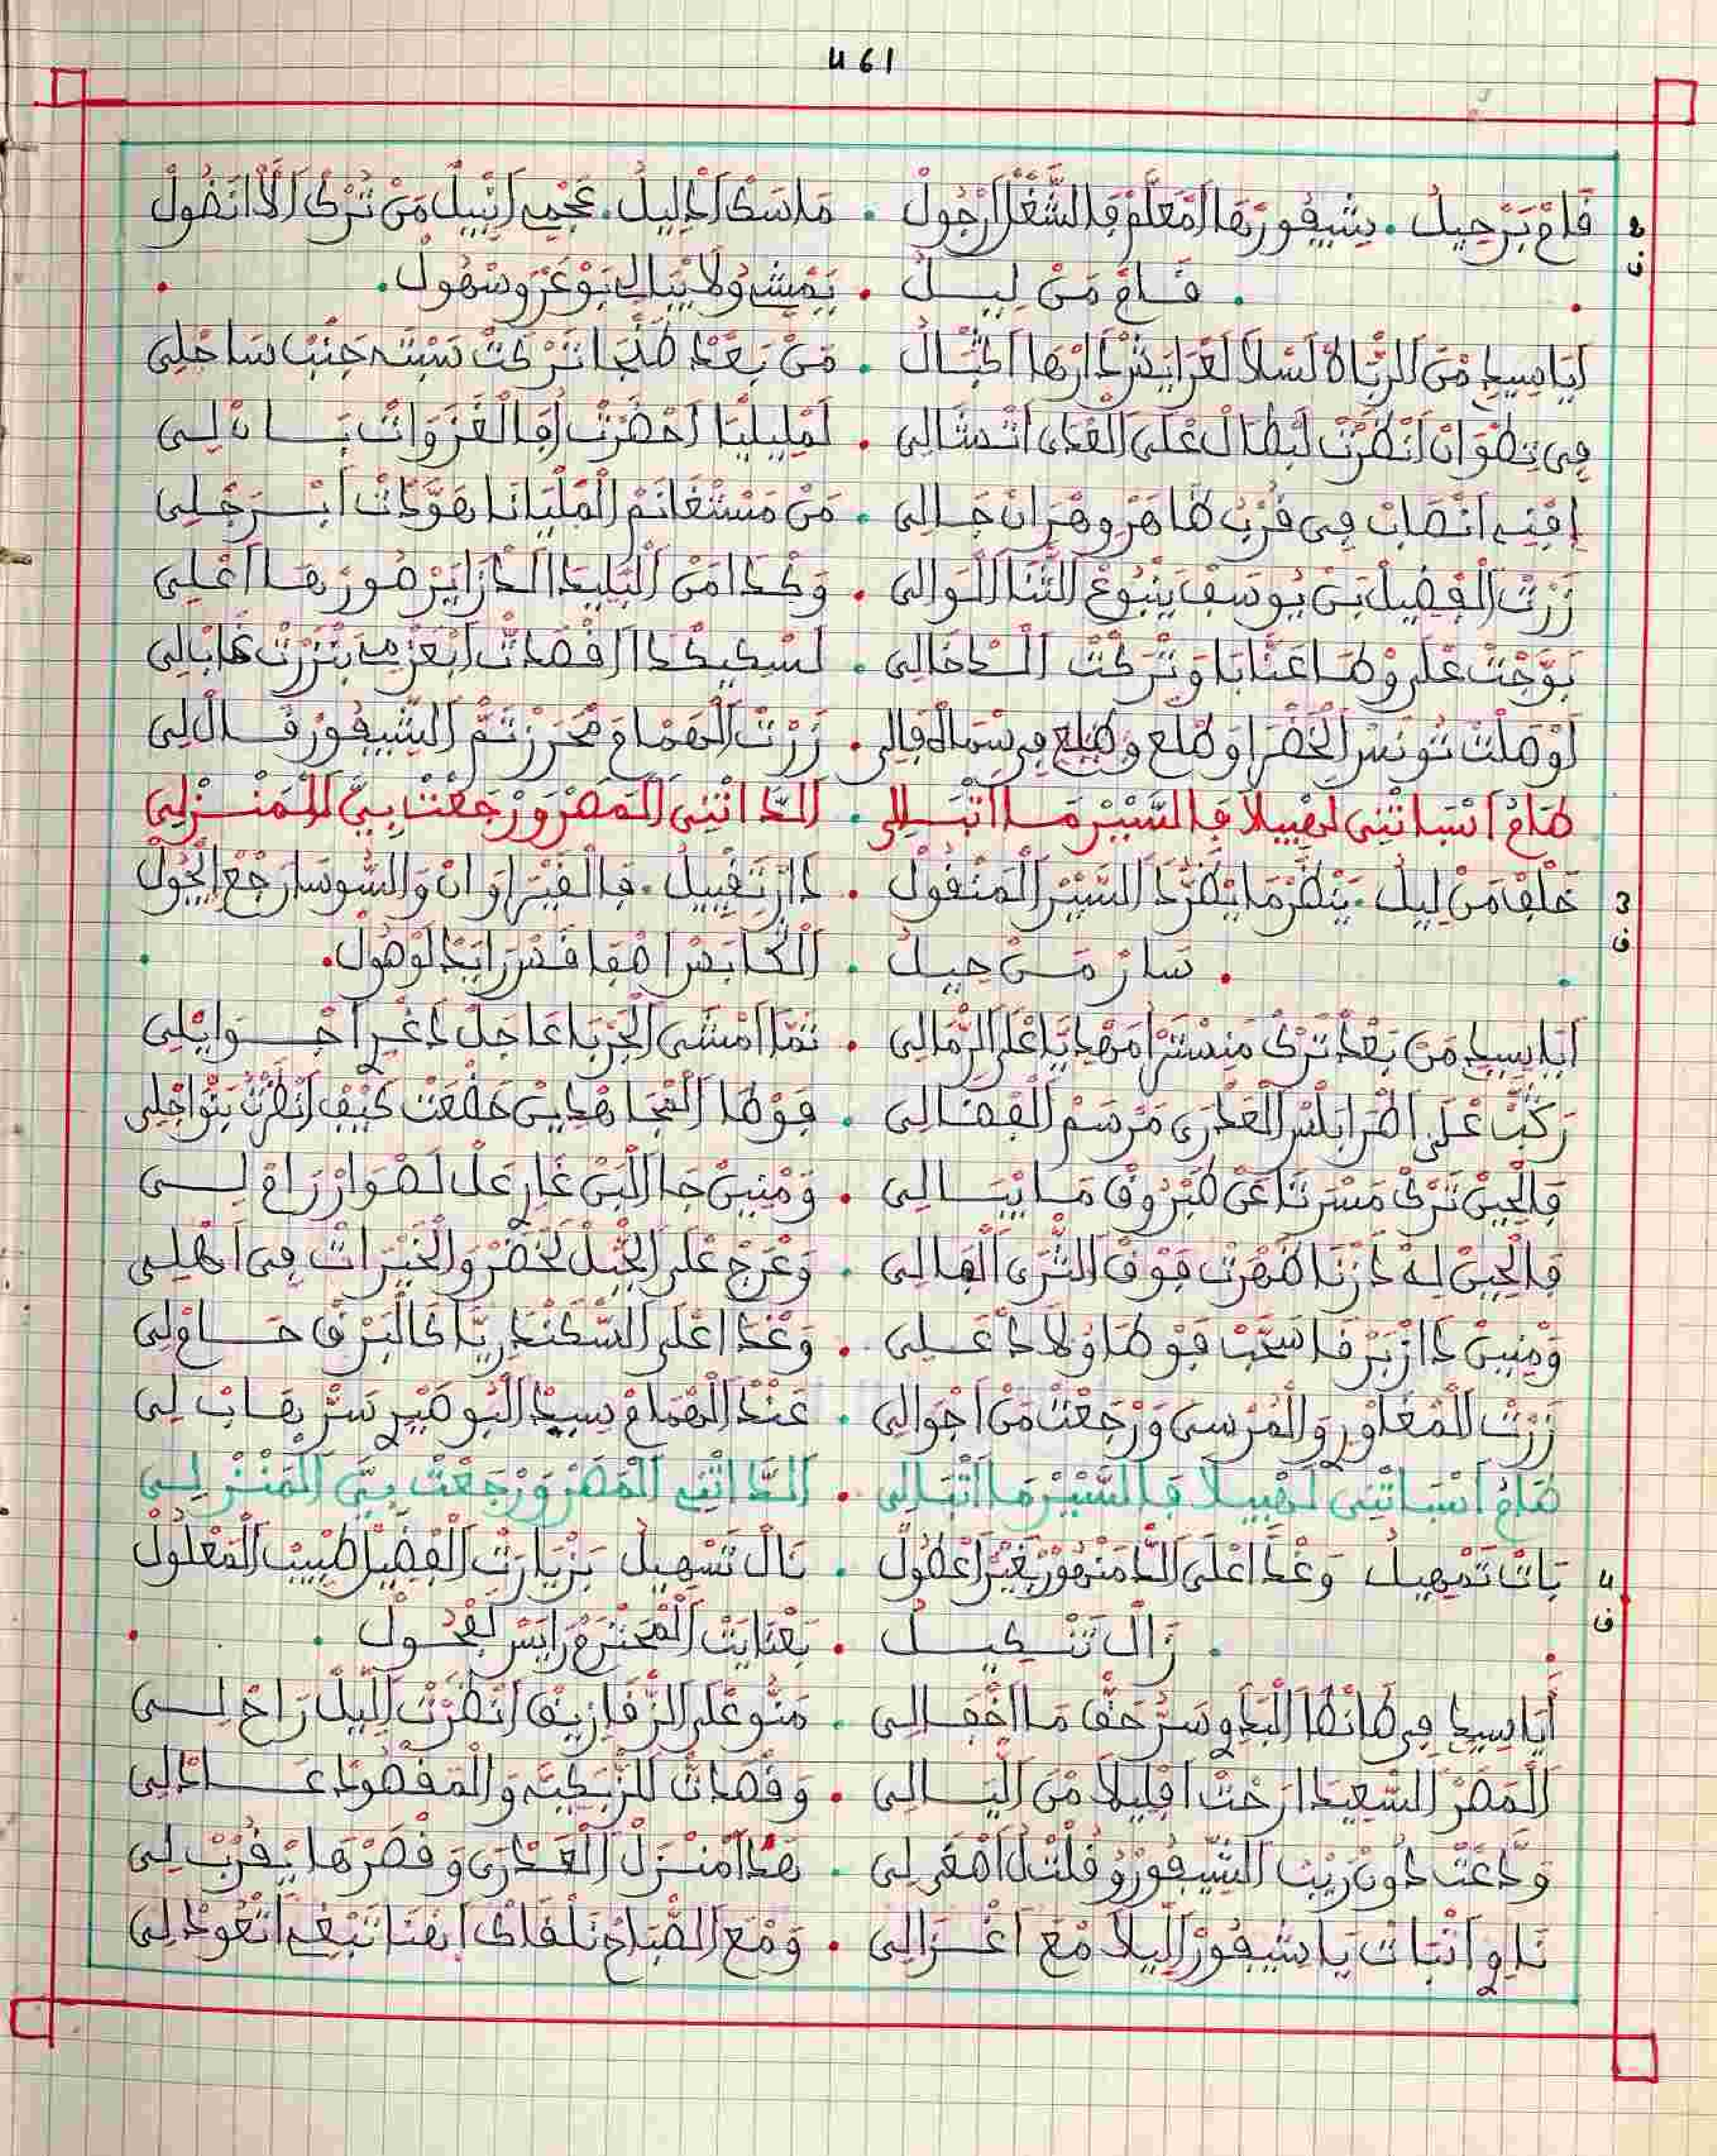 461
قام برحيل . بشيفورها امعلم فالشغل ارجول . ماسك ادليل . عجمي انبيل من ترك الا انقول
2 ف
. قام من ليل . يمشي ولا يبالي بوعر وسهول .
أيا سيدي من الرباط لسلا لعرايش دارها اكبال . من بعد طنجا تركت سبته جنب ساحلي
في تطوان انظرت لبطال على العدى اتشالي . لمليليا احضرت أفالغزوات بان لي
افنيه انصاب في قرب ظاهر وهران جالي . من مستغانم المليانا هودت ابرجلي
زرت الفضيل بن يوسف ينبوع الثنا الوالي . وكدا من البليدا الدزاير صورها اعلي
بوجت على وطا عنابا وتركت الدخالي . لسكيكدا اقصدت ابعزمي بنزرت غابلي
لوصلت تونس الخضرا وطلع وطلع في سماه قالي . زرت الهمام محرز تم الشيفور قال لي
طام أنساتني لهبيلا فالسير ما اتبالي . الد اتني المصر ورجعت بي المنزلي
خلف من ليل . ينظر ما يطرد السير المنقول . دار تقبيل . فالقيروان والسوسا رجع ايجول
3 ف
. سار من جيل . الكابس اصفاقس رايد لوصول .
أيا سيدي من بعد ترك منستر أمهديا على الرمالي . تما امشى الجربا عاجل دغيا جوا يلي
ركب على اطرابلس العدرى مرسم الفضالي . فوطا المجاهدين خضعت كيف انظرت بنواجلي
فالحين ترك مسرتا عن طبروق ما يبالي . ومنين جا البن غازي عل لصوار زام لي
فالحين له درنا ظهرت فوق الثرى الهالي . وعرج على الجبل لخضر والخيرات في اهلي
ومنين دار برقا سحب فوطا ولاد علي . وغدا على السكندريا كالبرق حام لي
زرت المغاور والمرسى ورجعت من اجوالي . عند الهمام سيد البوصير سري يصاب لي
طام أنساتني لهبيلا فالسير ما اتبالي . الد اتني المصر ورجعت بي المنزلي
بات تمهيل وغدا على الدمنهور بغير اعطول . نال تسهيل بزيارت الفضيل طبيب المعلول
4 ف
. زال تنكيل . بعنايت المحترم رايس لفحول .
أيا سيدي في طانطا البدوي سر حق ما اخفالي . منو على الزقازيق انظرت الليل راح لي
المصر السعيدا ارحت اقليلا من اليالي . وقصدت لزبكيه والمقصود عادلي
ودعت دون ريب الشيفور وقلت ل اصغى لي . هدا منزل العدرى وقصرها يقرب لي
ناوي انبات يا شيفور الليلا مع اغزالي . ومع الصباح نلقاك اهنا نبغي انعود لي